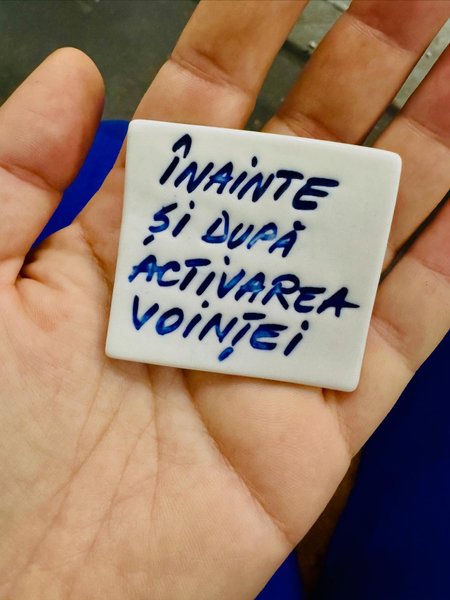 ÎNAINTE
ȘI DUPĂ
ACTIVAREA
VOINȚEI